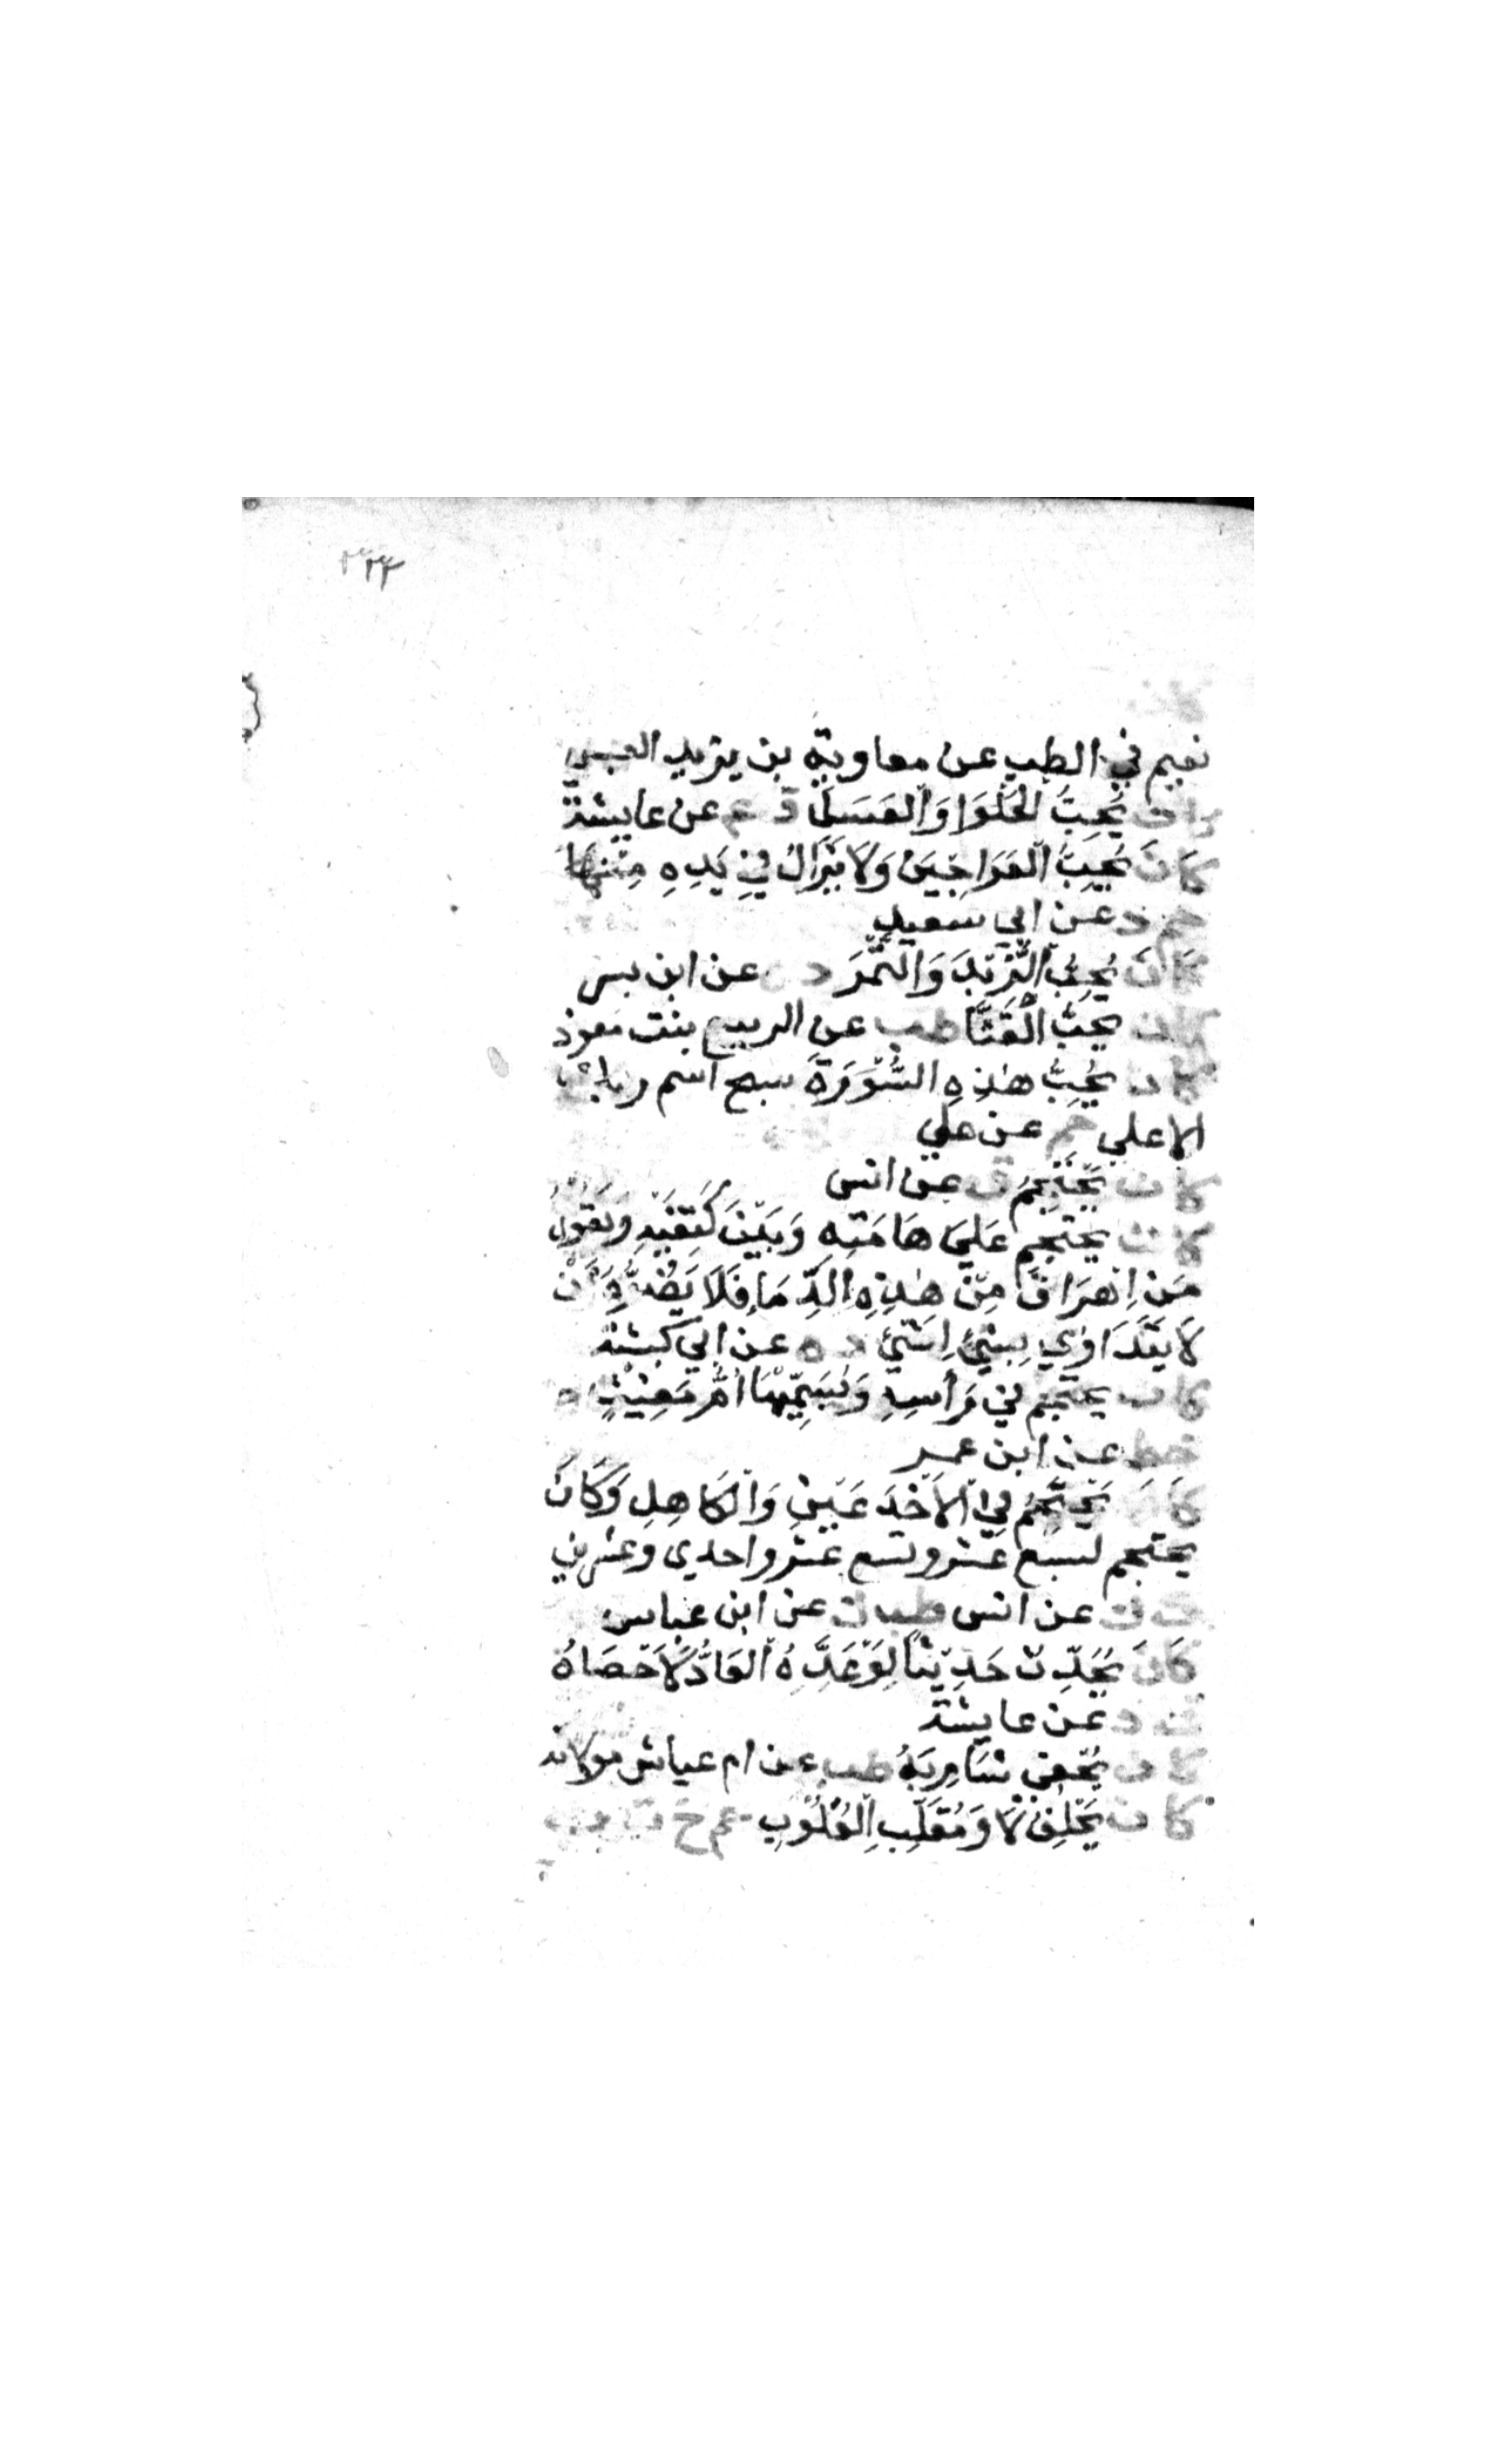 ٣٣٣
نعيم في الطب عن معاوية بن يزيد العبسي
كان يُحِبُّ الحَلْوَا وَالعَسَلَ ق ع عن عايشة
كَانَ يُحِبُّ العَرَاجِينَ وَلَا يَزَالُ فِي يَدِهِ مِنْهَا
حم د عن ابي سعيد
كَانَ يُحِبُّ الزُّبْدَ وَالتَّمْرَ د ه عن ابن بسر
كان يحِبُّ الْقِثَّا طب عن الربيع بنت معوذ
كان يُحِبُّ هٰذِهِ السُّوْرَةَ سبح اسم ربك
الاعلي حم عن علي
كان يَحْتَجِمُ ق عن انس
كان يحتجم عَلَى هَامَتِه وَبَيْنَ كَتِفَيْهِ ويقول
مَنِ اهْرَاقَ مِنْ هٰذِهِ الدِّمَا فَلَا يَضُرُّهُ اَنْ
لَا يَتَدَاوٰي بِشَيْئٍ لِشَيْئٍ د ه عن ابي كبشة
كان يحتجم في رَأْسِهِ وَيُسَمِّيْهَا أُمَّ مُغِيْثٍ
خط عن ابن عمر
كَانَ يَحْتَجِمُ فِي الاَخْدَعَيْنِ وَالكَاهِلِ وَكَانَ
يحتجم لسبع عشر وتسع عشر واحدي وعشرين
ت ك عن انس طب ك عن ابن عباس
كَانَ يُحَدِّث حَدِيْثًا لَوْ عَدَّهُ الْعَادُّ لَاَحْصَاهُ
ق د عن عايشة
كان يُحْفِي شَارِبَهُ طب عن ام عياش مولاته
كان يَحْلِفُ لَا وَمُقَلِّبِ الْقُلُوْبِ حم خ ت ن